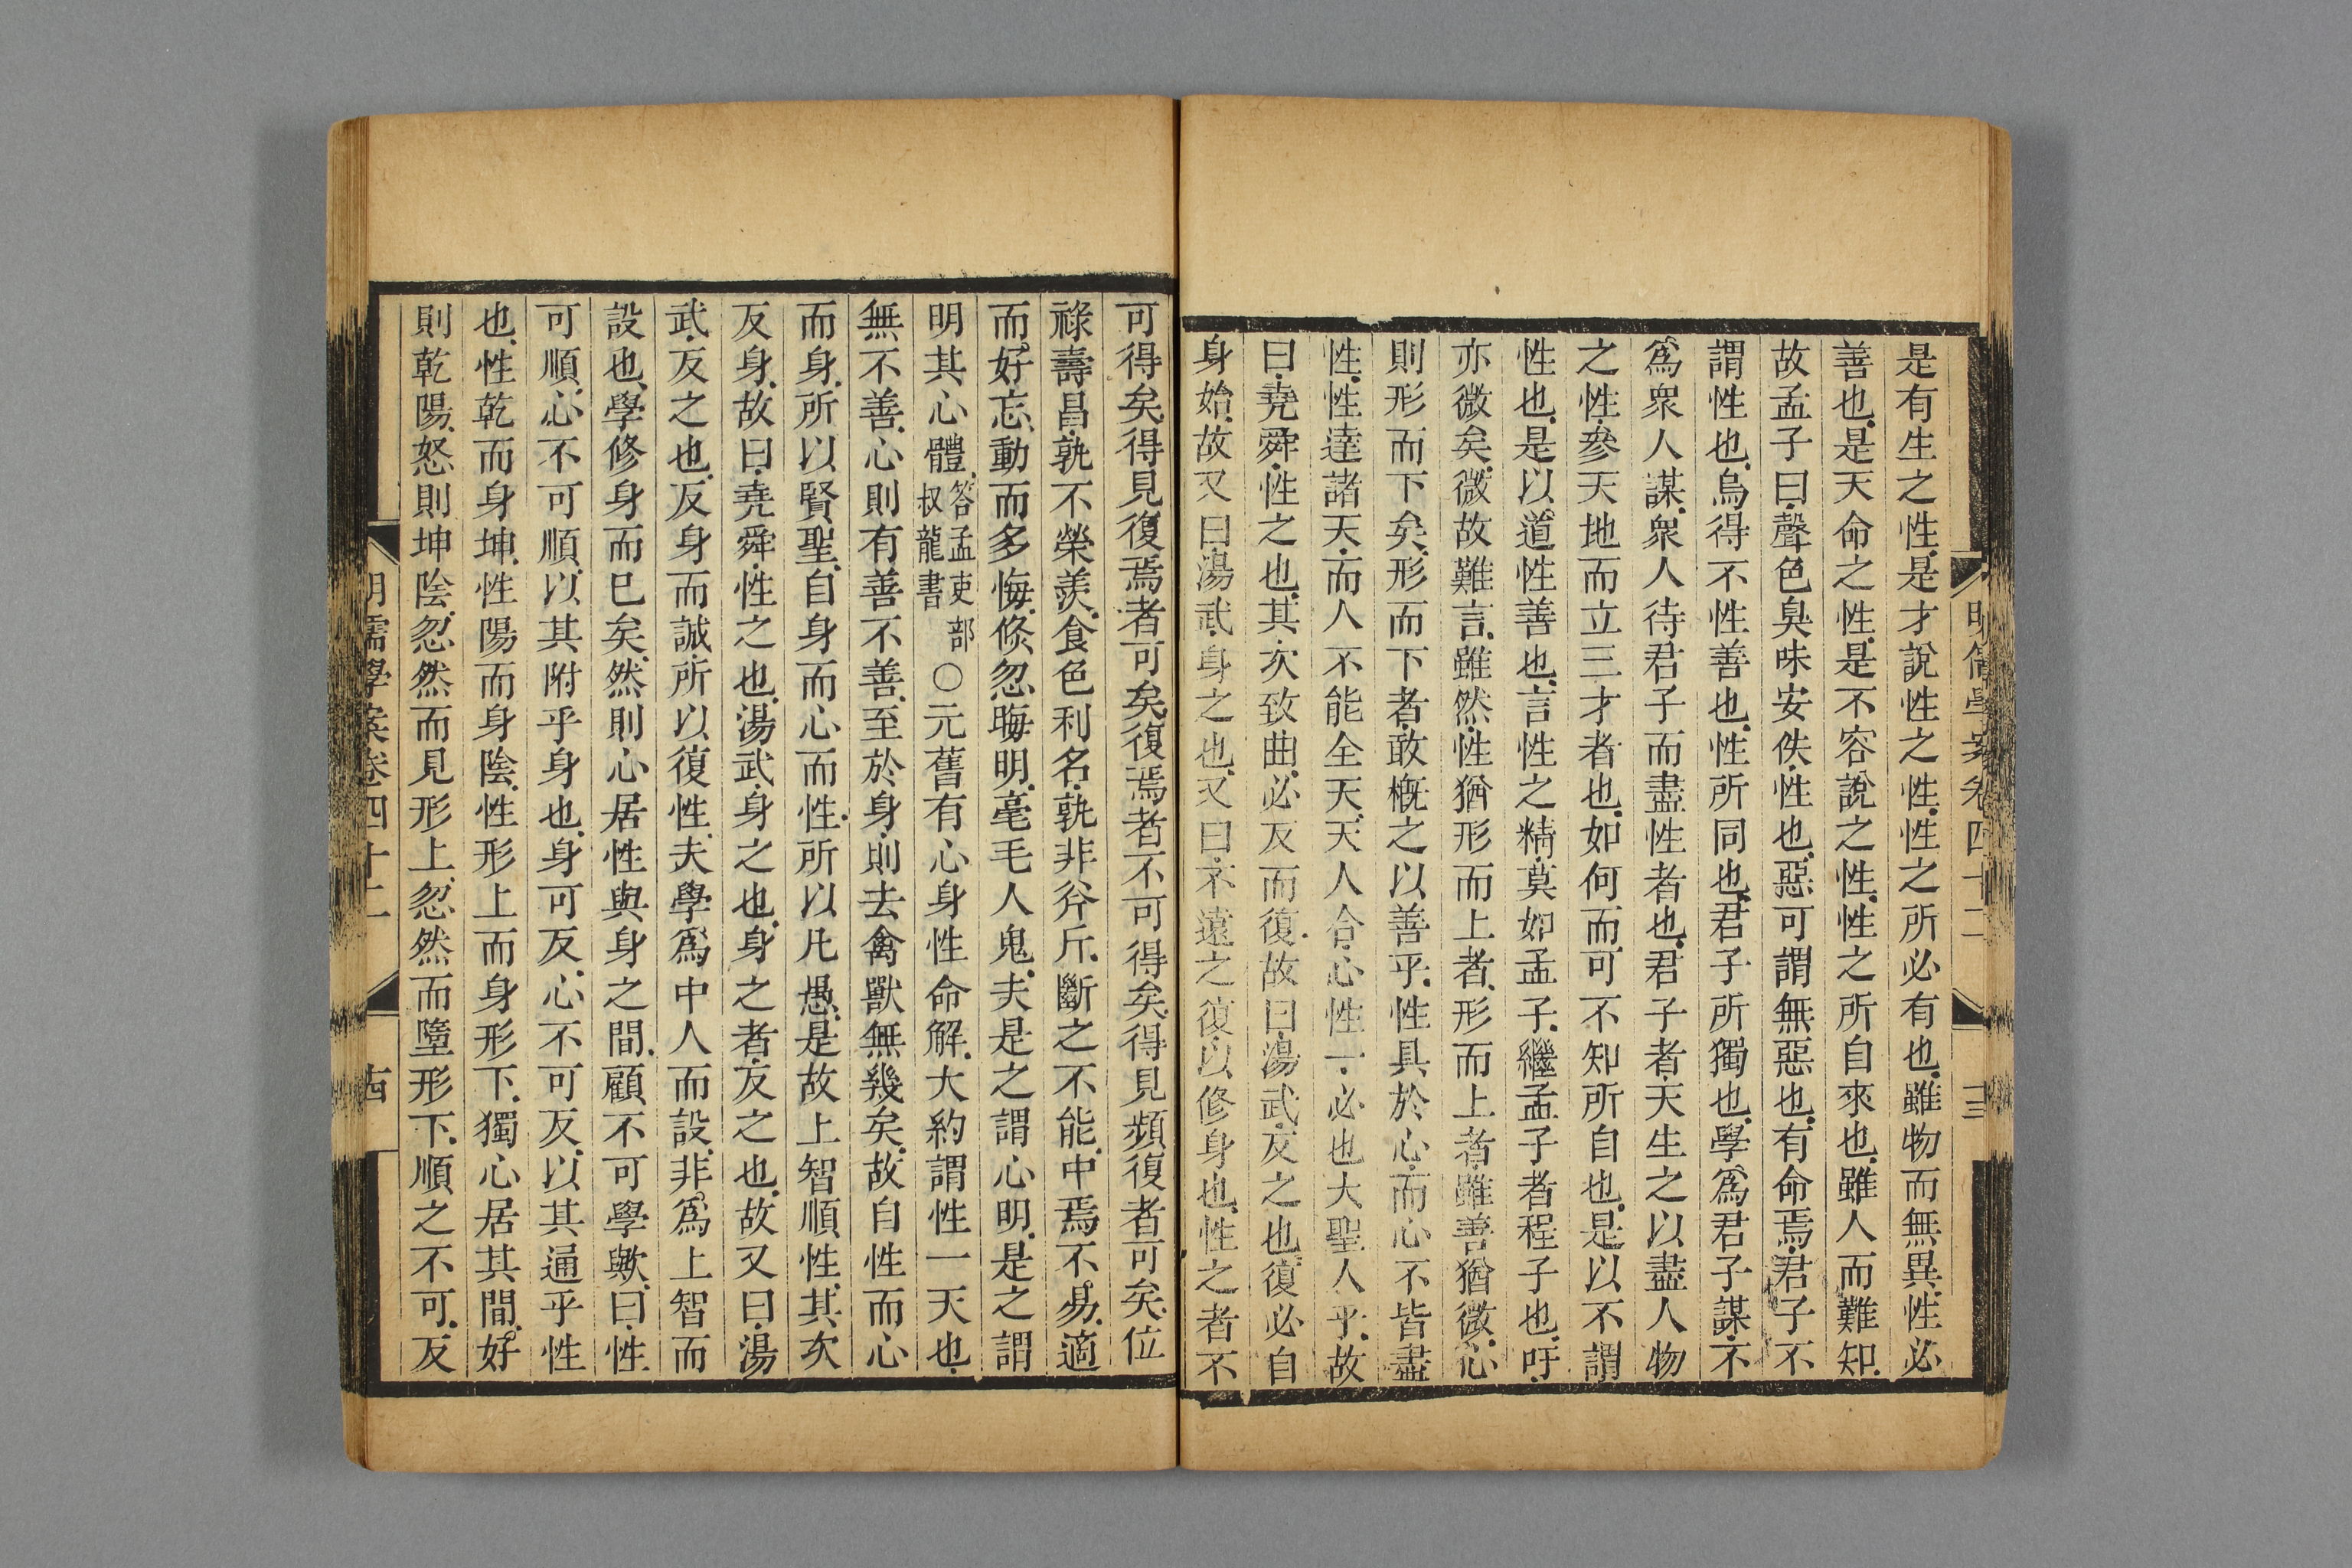 明儒學案卷四十二
十三
是有生之性是才說性之性性之所必有也雖物而無異性必
善也是天命之性是不容說之性性之所自來也雖人而難知
故孟子曰聲色臭味安佚性也惡可謂無惡也有命焉君子不
謂性也烏得不性善也性所同也君子所獨也學爲君子謀不
爲衆人謀衆人待君子而盡性者也君子者天生之以盡人物
之性參天地而立三才者也如何而可不知所自也是以不謂
性也是以道性善也言性之精莫如孟子繼孟子者程子也吁
亦微矣微故難言雖然性猶形而上者形而上者雖善猶微心
則形而下矣形而下者敢概之以善乎性具於心而心不皆盡
性性達諸天而人不能全天天人合心性一必也大聖人乎故
曰堯舜性之也其次致曲必反而復故曰湯武反之也復必自
身始故又曰湯武身之也又曰不遠之復以修身也性之者不
可得矣得見復焉者可矣復焉者不可得矣得見頻復者可矣位
祿壽昌孰不榮羨食色利名孰非斧斤斷之不能中焉不易適
而好忘動而多悔倏忽晦明毫毛人鬼夫是之謂心明是之謂
明其心體答孟吏部叔龍書○元舊有心身性命解大約謂性一天也
無不善心則有善不善至於身則去禽獸無幾矣故自性而心
而身所以賢聖自身而心而性所以凡愚是故上智順性其次
反身故曰堯舜性之也湯武身之也身之者反之也故又曰湯
武反之也反身而誠所以復性夫學爲中人而設非爲上智而
設也學修身而已矣然則心居性與身之間顧不可學歟曰性
可順心不可順以其附乎身也身可反心不可反以其通乎性
也性乾而身坤性陽而身陰性形上而身形下獨心居其間好
則乾陽怒則坤陰忽然而見形上忽然而墮形下順之不可反
明儒學案卷四十二